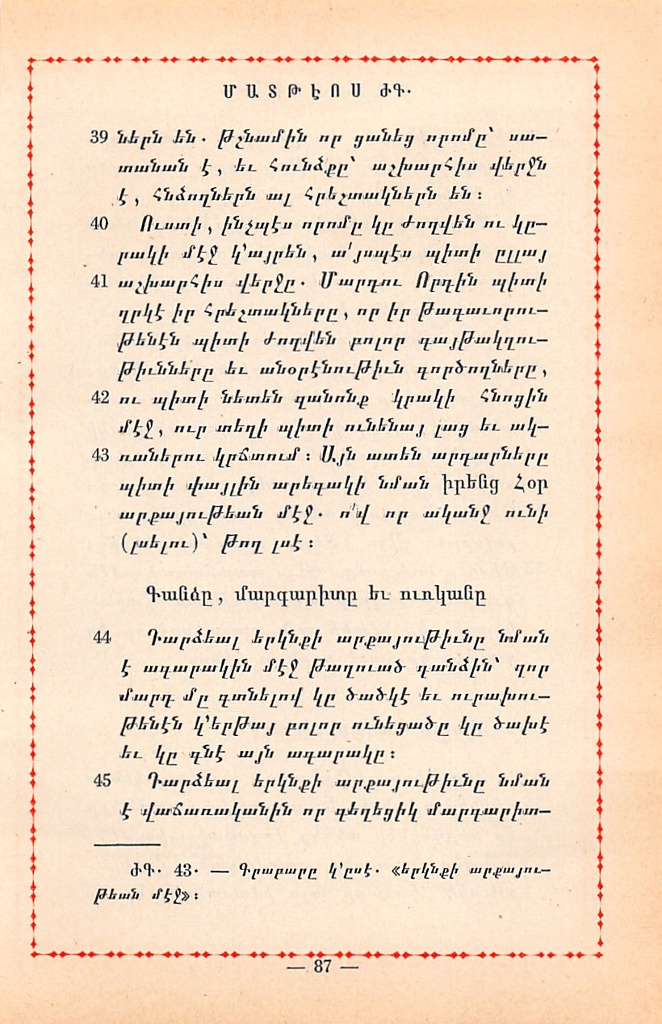 ՄԱՏԹԷՈՍ ԺԳ.
39 ներն են. թշնամին որ ցանեց որոմը՝ սա—
տանան է, եւ հունձքը՝ աշխարհիս վերջն
է, հնձողներն ալ հրեշտակներն են։
40 Ուստի, ինչպէս որոմը կը ժողվեն ու կը—
րակի մէջ կ՚այրեն, ա՛յսպէս պիտի ըլլայ
41 աշխարհիս վերջը. Մարդու Որդին պիտի
ղրկէ իր հրեշտակները, որ իր թագաւորու—
թենէն պիտի ժողվեն բոլոր գայթակղու—
թիւնները եւ անօրէնութիւն գործողները,
42 ու պիտի նետեն զանոնք կրակի հնոցին
մէջ, ուր տեղի պիտի ունենայ լաց եւ ակ—
43 ռաներու կրճտում։ Այն ատեն արդարները
պիտի փայլին արեգակի նման իրենց Հօր
արքայութեան մէջ. ո՛վ որ ականջ ունի
(լսելու)՝ թող լսէ։
Գանձը, մարգարիտը եւ ուռկանը
44 Դարձեալ երկնքի արքայութիւնը նման
է ագարակին մէջ թաղուած գանձին՝ զոր
մարդ մը գտնելով կը ծածկէ եւ ուրախու—
թենէն կ՚երթայ բոլոր ունեցածը կը ծախէ
եւ կը գնէ այն ագարակը։
45 Դարձեալ երկնքի արքայութիւնը նման
է վաճառականին որ գեղեցիկ մարգարիտ—
ԺԳ. 43. — Գրաբարը կ՚ըսէ. «երկնքի արքայու—
թեան մէջ»։
— 87 —